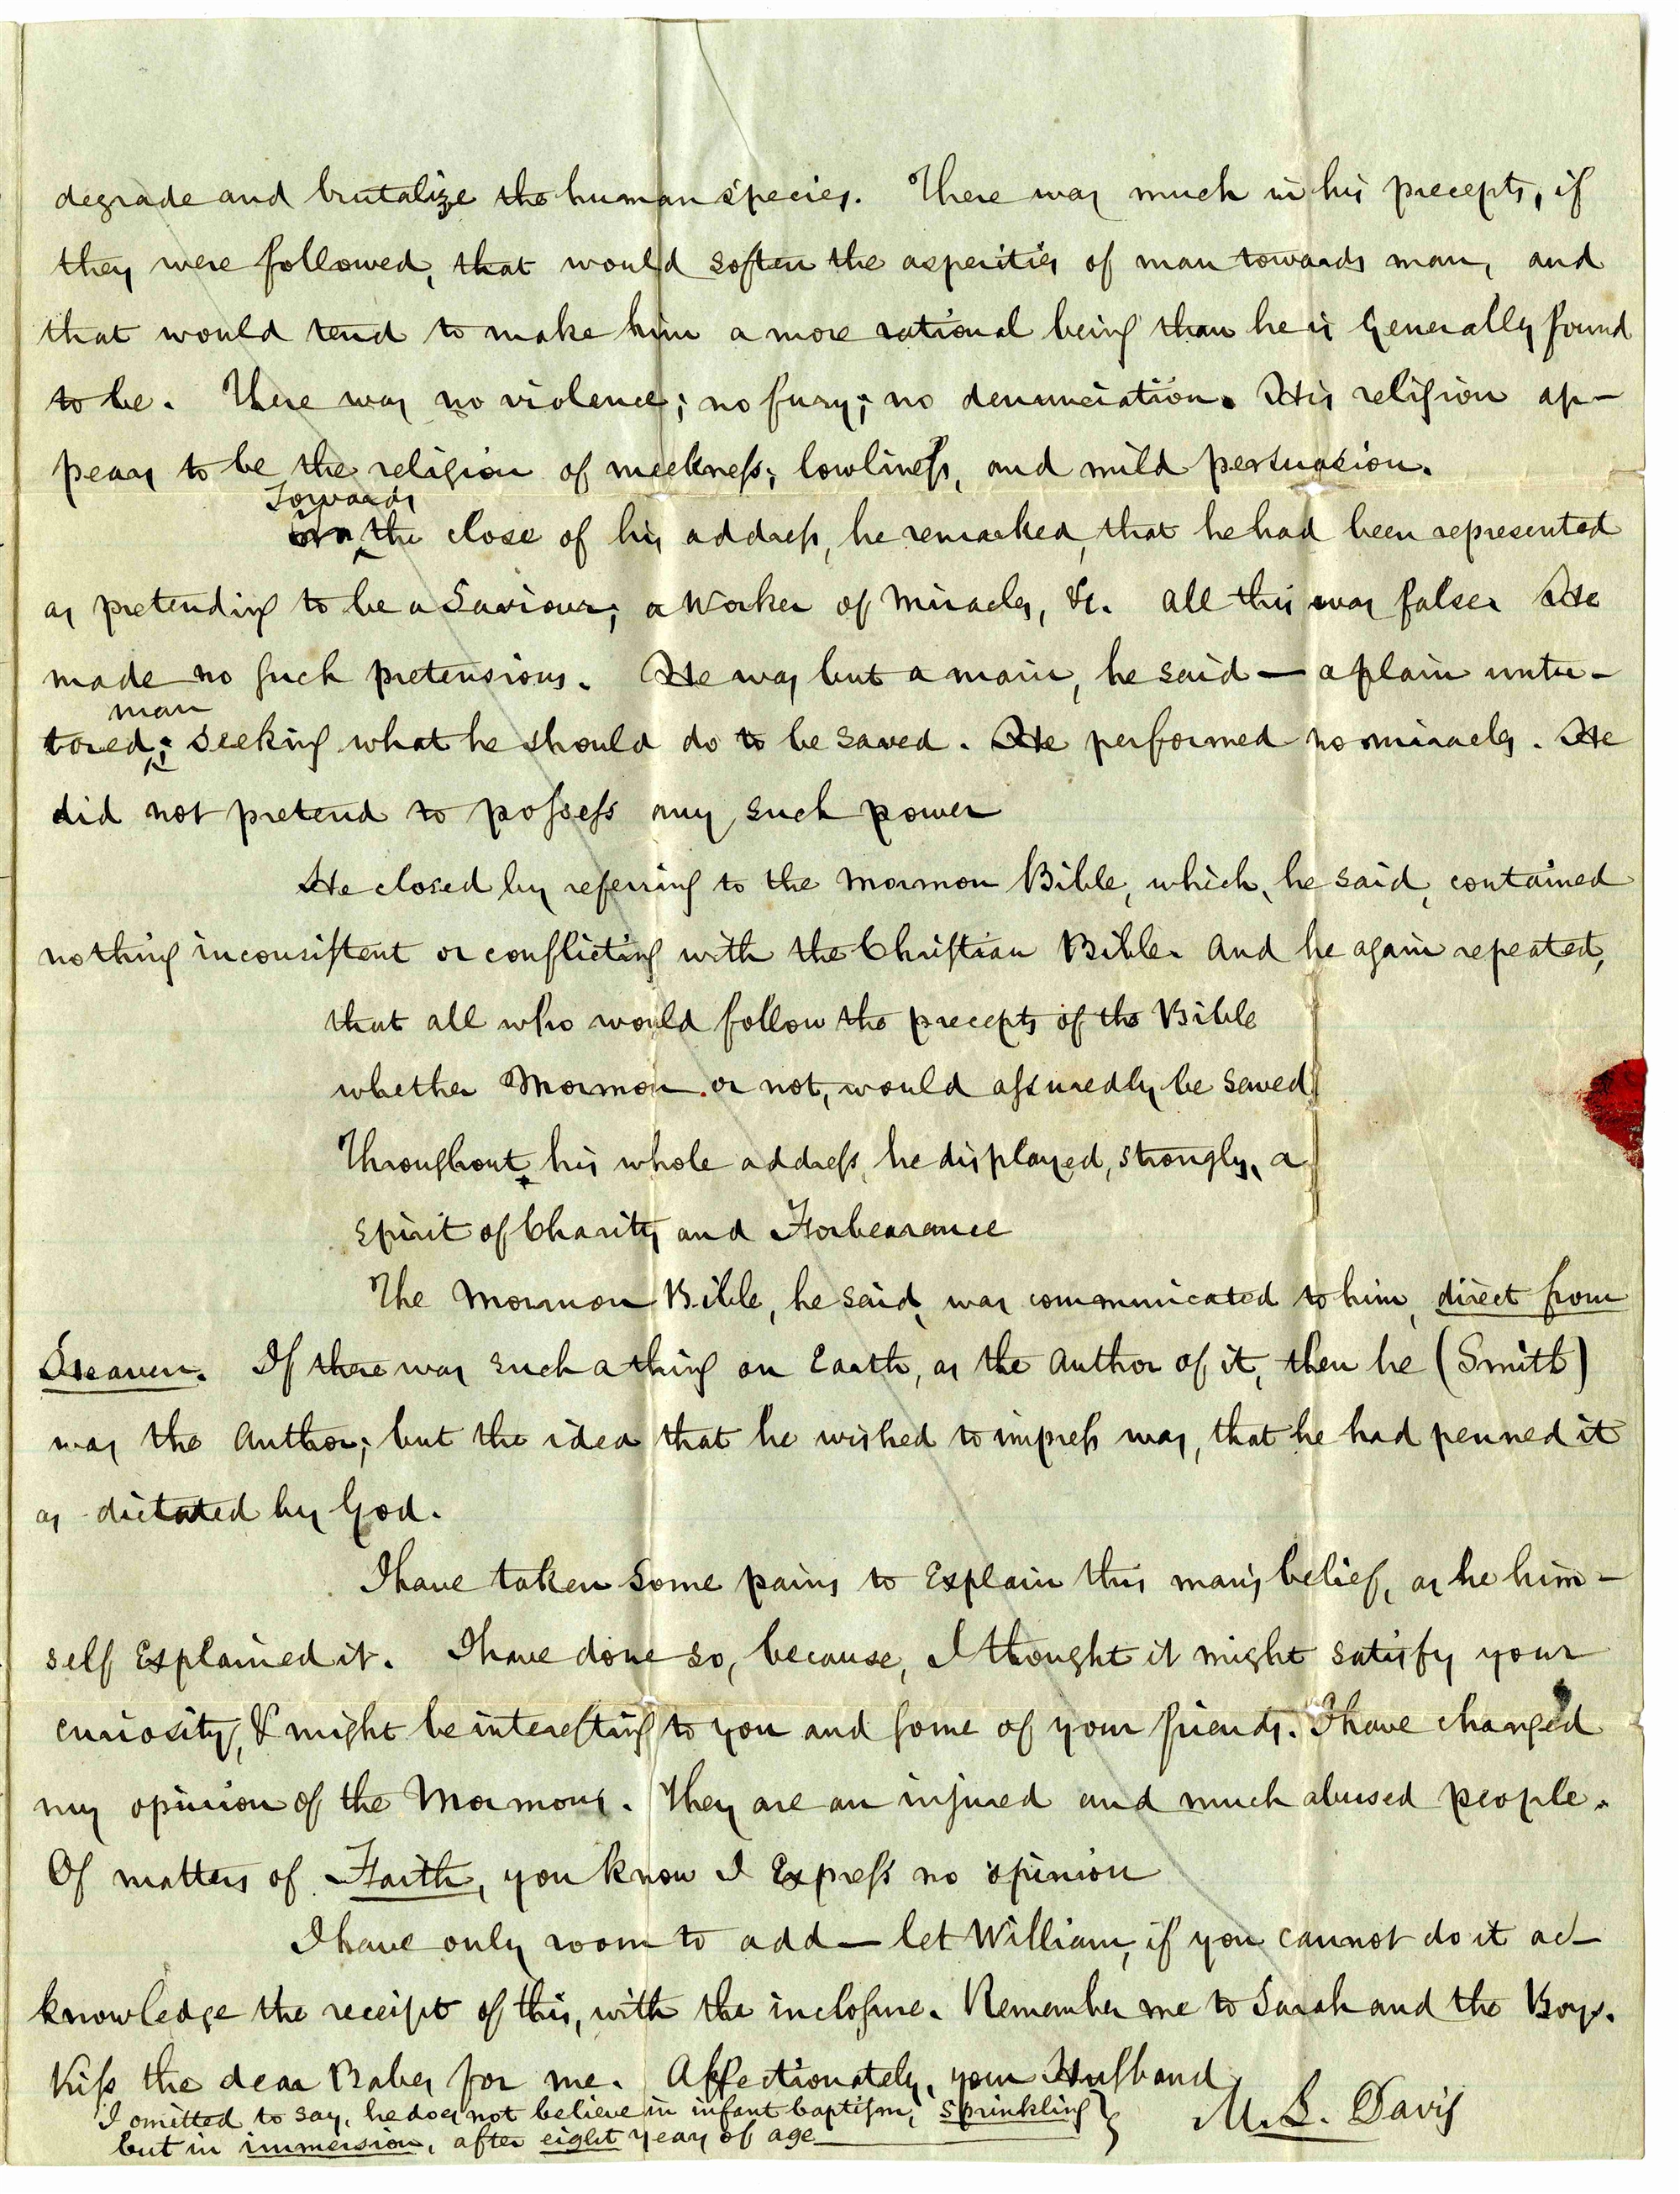 degrade and brutalize the human species. There was much in his precepts, if
they were followed, that would soften the asperities of man towards man, and
that would tend to make him a more rational being than he is Generally found
to be. There was no violence; no fury; no denunciation. His religion ap-
pears to be the religion of meekness; lowliness, and mild persuasion.
Towards
the close of his address, he remarked, that he had been represented
as pretending to be a Saviour; a Worker of Miracles, &c. All this was false. He
made no such pretensions. He was but a man, he said — a plain untu-
man
tored; seeking what he should do to be saved. He performed no miracles. He
did not pretend to possess any such power
He closed by referring to the Mormon Bible, which, he said, contained
nothing inconsistent or conflicting with the Christian Bible. And he again repeated,
that all who would follow the precepts of the Bible
whether Mormon or not, would assuredly be saved
Throughout his whole address, he displayed, strongly, a
Spirit of Charity and Forbearance
The Mormon Bible, he said, was communicated to him, direct from
Heaven. If there was such a thing on Earth, as the Author of it, then he (Smith)
was the Author; but the idea that he wished to impress was, that he had penned it
as dictated by God.
I have taken some pains to Explain this man's belief, as he him-
self Explained it. I have done so, because, I thought it might satisfy your
curiosity, & might be interesting to you and some of your friends. I have changed
my opinion of the Mormons. They are an injured and much abused people.
Of matters of Faith, you know I Express no opinion
I have only room to add — let William, if you cannot do it ac-
knowledge the receipt of this, with the inclosure. Remember me to Sarah and the Boys.
Kiss the dear Babes for me. Affectionately, your Husband
I omitted to say, he does not believe in infant baptism, Sprinkling
but in immersion, after eight years of age
M. L. Davis